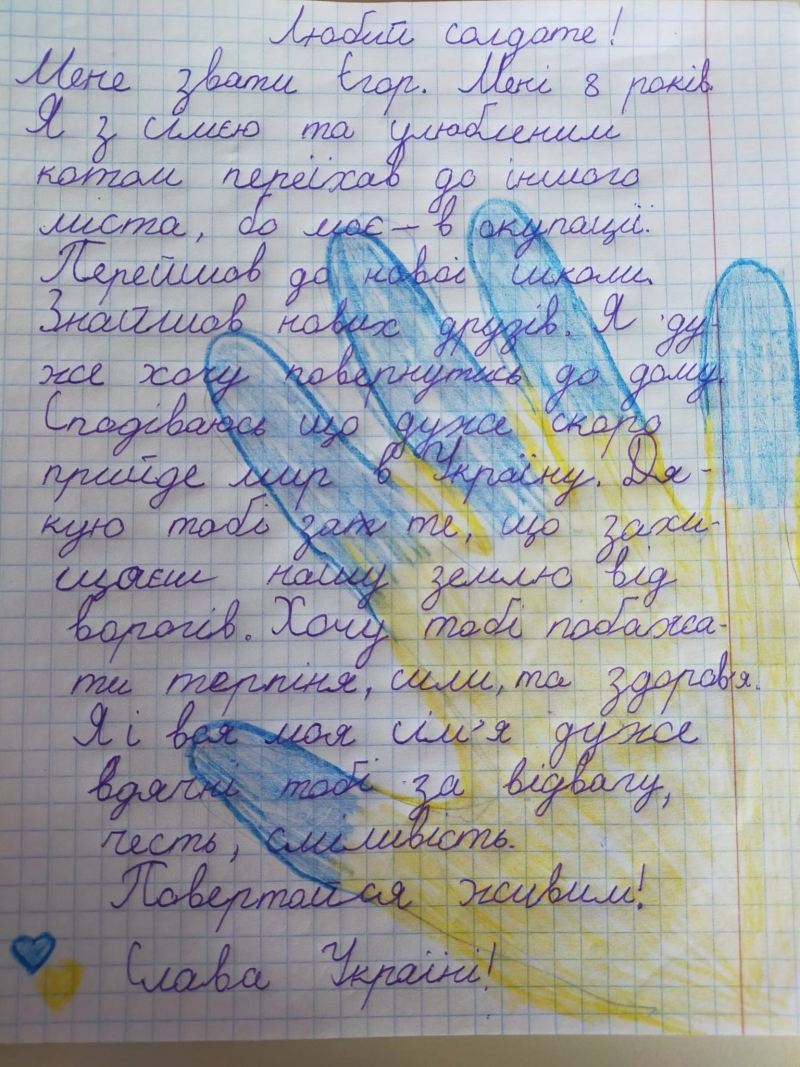 Любий солдате!
Мене звати Єгор. Мені 8 років.
Я з сімєю та улюбленим
котом переїхав до іншого
миста, бо моє – в окупації.
Перейшов до нової школи.
Знайшов нових друзів. Я ду-
же хочу повернутись до дому.
Сподіваюсь що дуже скоро
прийде мир в Україну. Дя-
кую тобі за те, що захи-
щаєш нашу землю від
ворогів. Хочу тобі побажа-
ти терпіня, сили, та здоровя.
Я і вся моя сім'я дуже
вдячні тобі за відвагу,
честь, сміливість.
Повертайся живим!
Слава Україні!